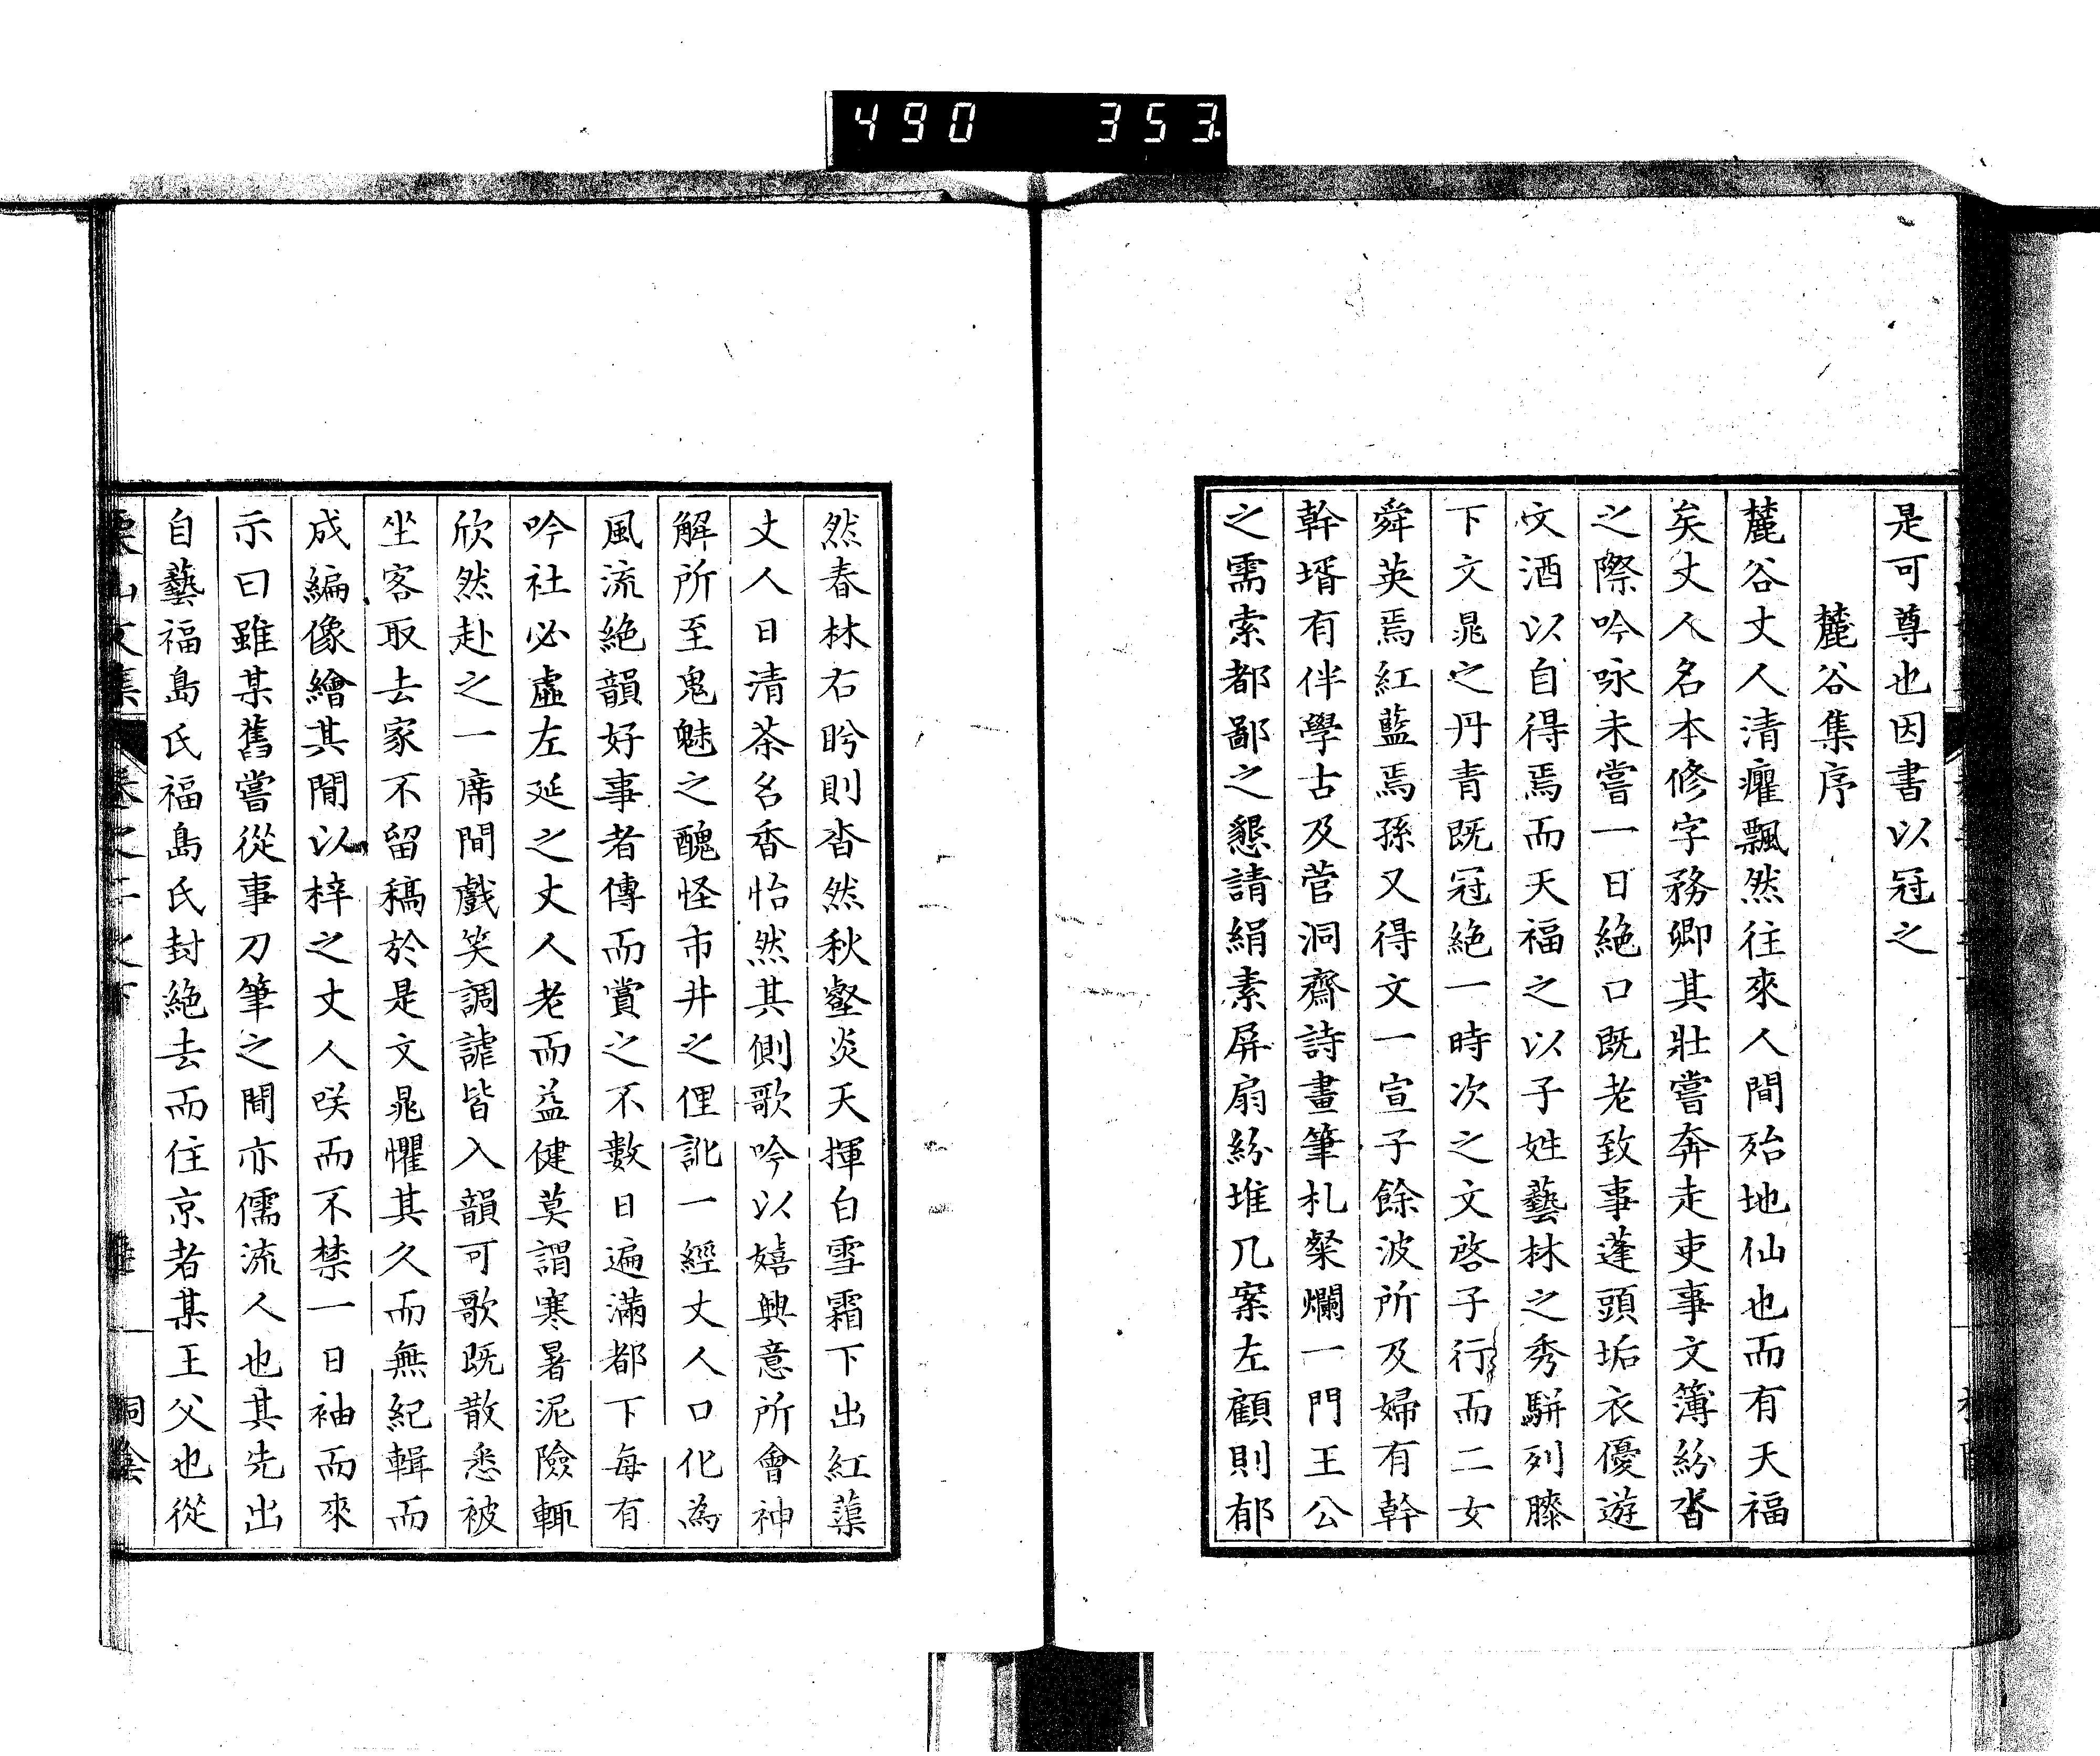 490 353
是可尊也因書以冠之
麓谷集序
麓谷丈人清癯飄然往來人間殆地仙也而有天福
矣丈人名本修字務卿其壯嘗奔走吏事文簿紛沓
之際吟咏未嘗一日絶口既老致事蓬頭垢衣優遊
文酒以自得焉而天福之以子姓藝林之秀駢列膝
下文晁之丹青既冠絶一時次之文啓子行而二女
舜英焉紅藍焉孫又得文一宣子餘波所及婦有幹
幹壻有伴學古及菅洞齋詩畫筆札粲爛一門王公
之需索都鄙之懇請絹素屏扇紛堆几案左顧則郁
然春林右盼則沓然秋壑炎天揮白雪霜下出紅蕖
丈人日清茶名香怡然其側歌吟以嬉興意所會神
解所至鬼魅之醜怪市井之俚訛一經丈人口化為
風流絶韻好事者傳而賞之不數日遍滿都下每有
吟社必虛左延之丈人老而益健莫謂寒暑泥險輒
欣然赴之一席間戲笑調謔皆入韻可歌既散悉被
坐客取去家不留稿於是文晁懼其久而無紀輯而
成編像繪其間以梓之丈人咲而不禁一日袖而來
示曰雖某舊嘗從事刀筆之間亦儒流人也其先出
自藝福島氏福島氏封絶去而住京者某王父也從
栗山文集 卷之二之下